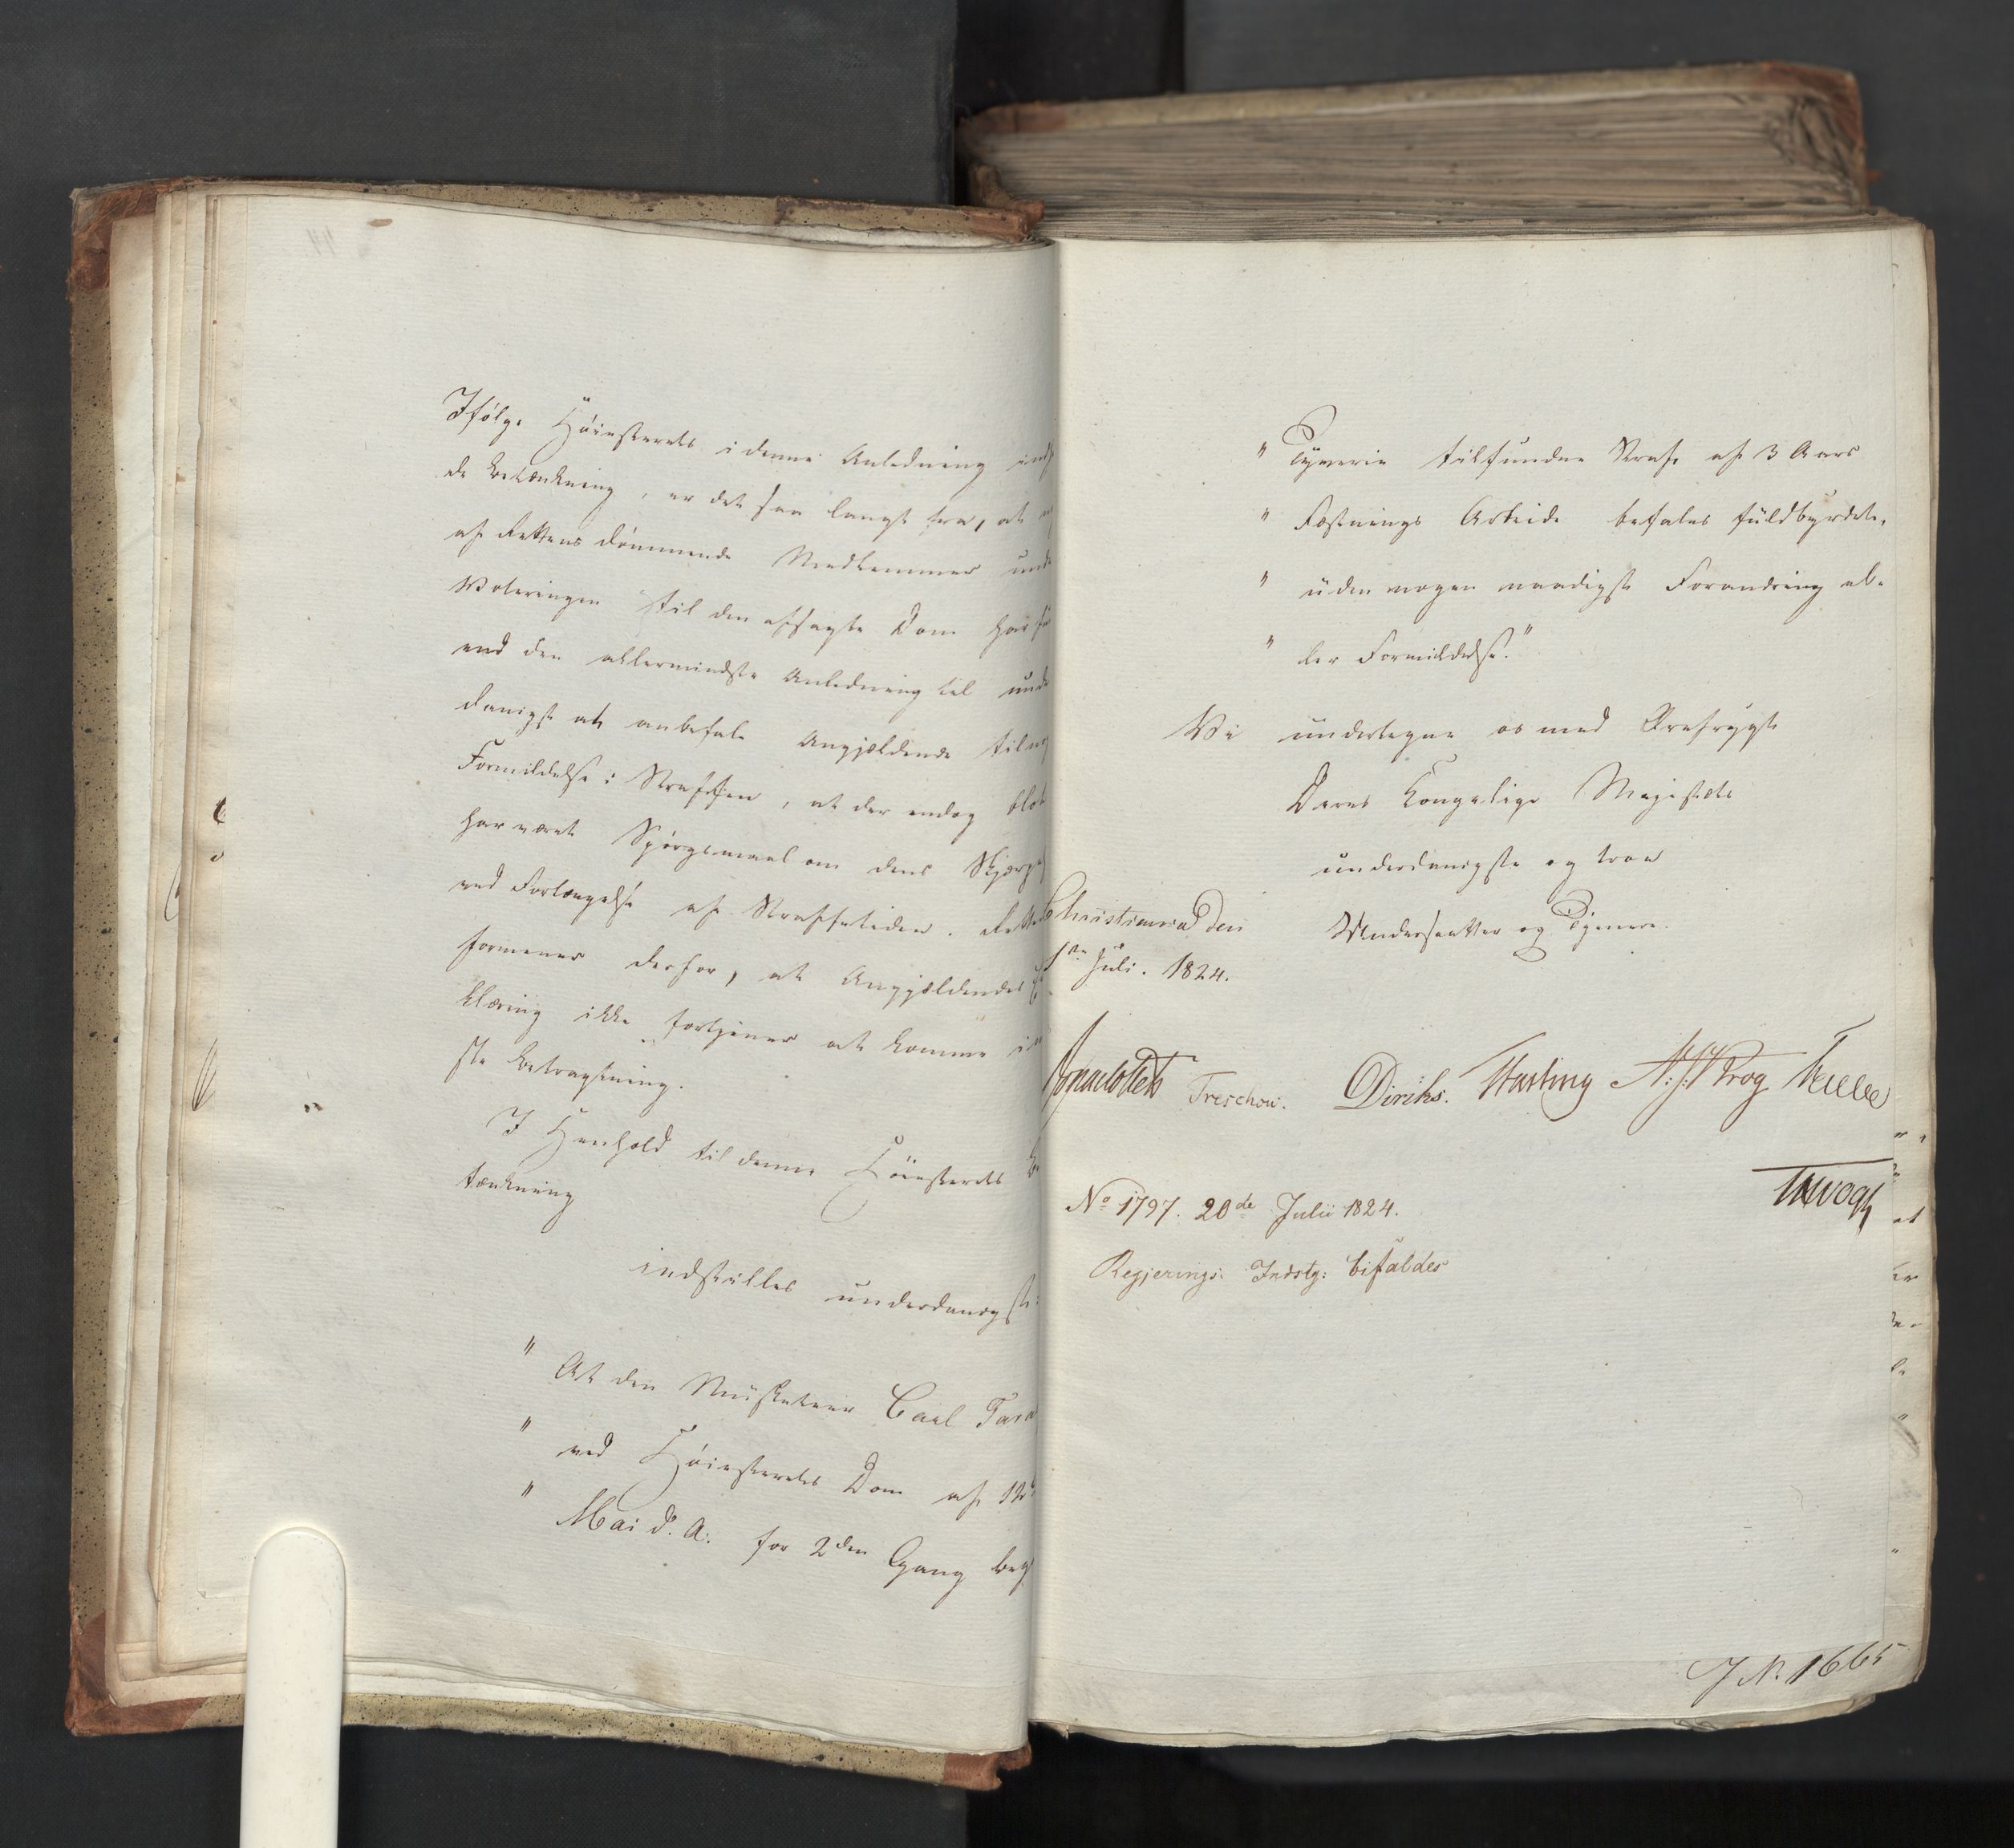 Ifølge Høiesterets i denne Anledning
de Betænkning, er det saa langt fra, at
af Rettens dømmende Medlemmer unde
Voteringen til den afsagte Dom har
end den allermindste Anledning til unde
danigst at anbefale Angjældende til
Formildelse i Straffen, at der endog blot
har været Spørgsmaal om dens Skjærpe
ved Forlængelse af Straffetiden. Rette
formener derfor, at Angjældendes
klæring ikke fortjener at komme i
ste Betragtning.
I Henhold til denne Høiesterets Be
tænkning
indstilles underdanigst:
" At den Musketeer Carl
" ved Høiesterets Dom af
" Mai d. A. for 2den Gang beg
" Tyverie tilfundne Straf af 3 Aars
" Fæstnings Arbeide befales fuldbyrdet,
" uden nogen naadigst Forandring el-
" ler Formildelse."
Vi undertegne os med Ærefrygt
Deres Kongelige Majestæts
underdanigste og troe
Undersaatter og Tjenere.
Christiania den
1ste Juli. 1824.
Treschow. Diriks. Krog
No 1797. 20de Julii 1824.
Regjerings: Indstg: bifaldes
J. N. 1665